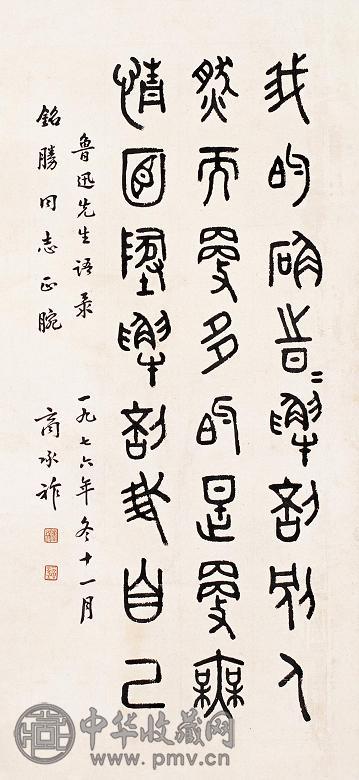 我的确旹〻解剖别人
然而更多的是更無
情面墬解剖我自己
鲁迅先生语录 一九七六年冬十一月
銘勝同志正腕 商承祚
中华收藏网
www.pmv.cn